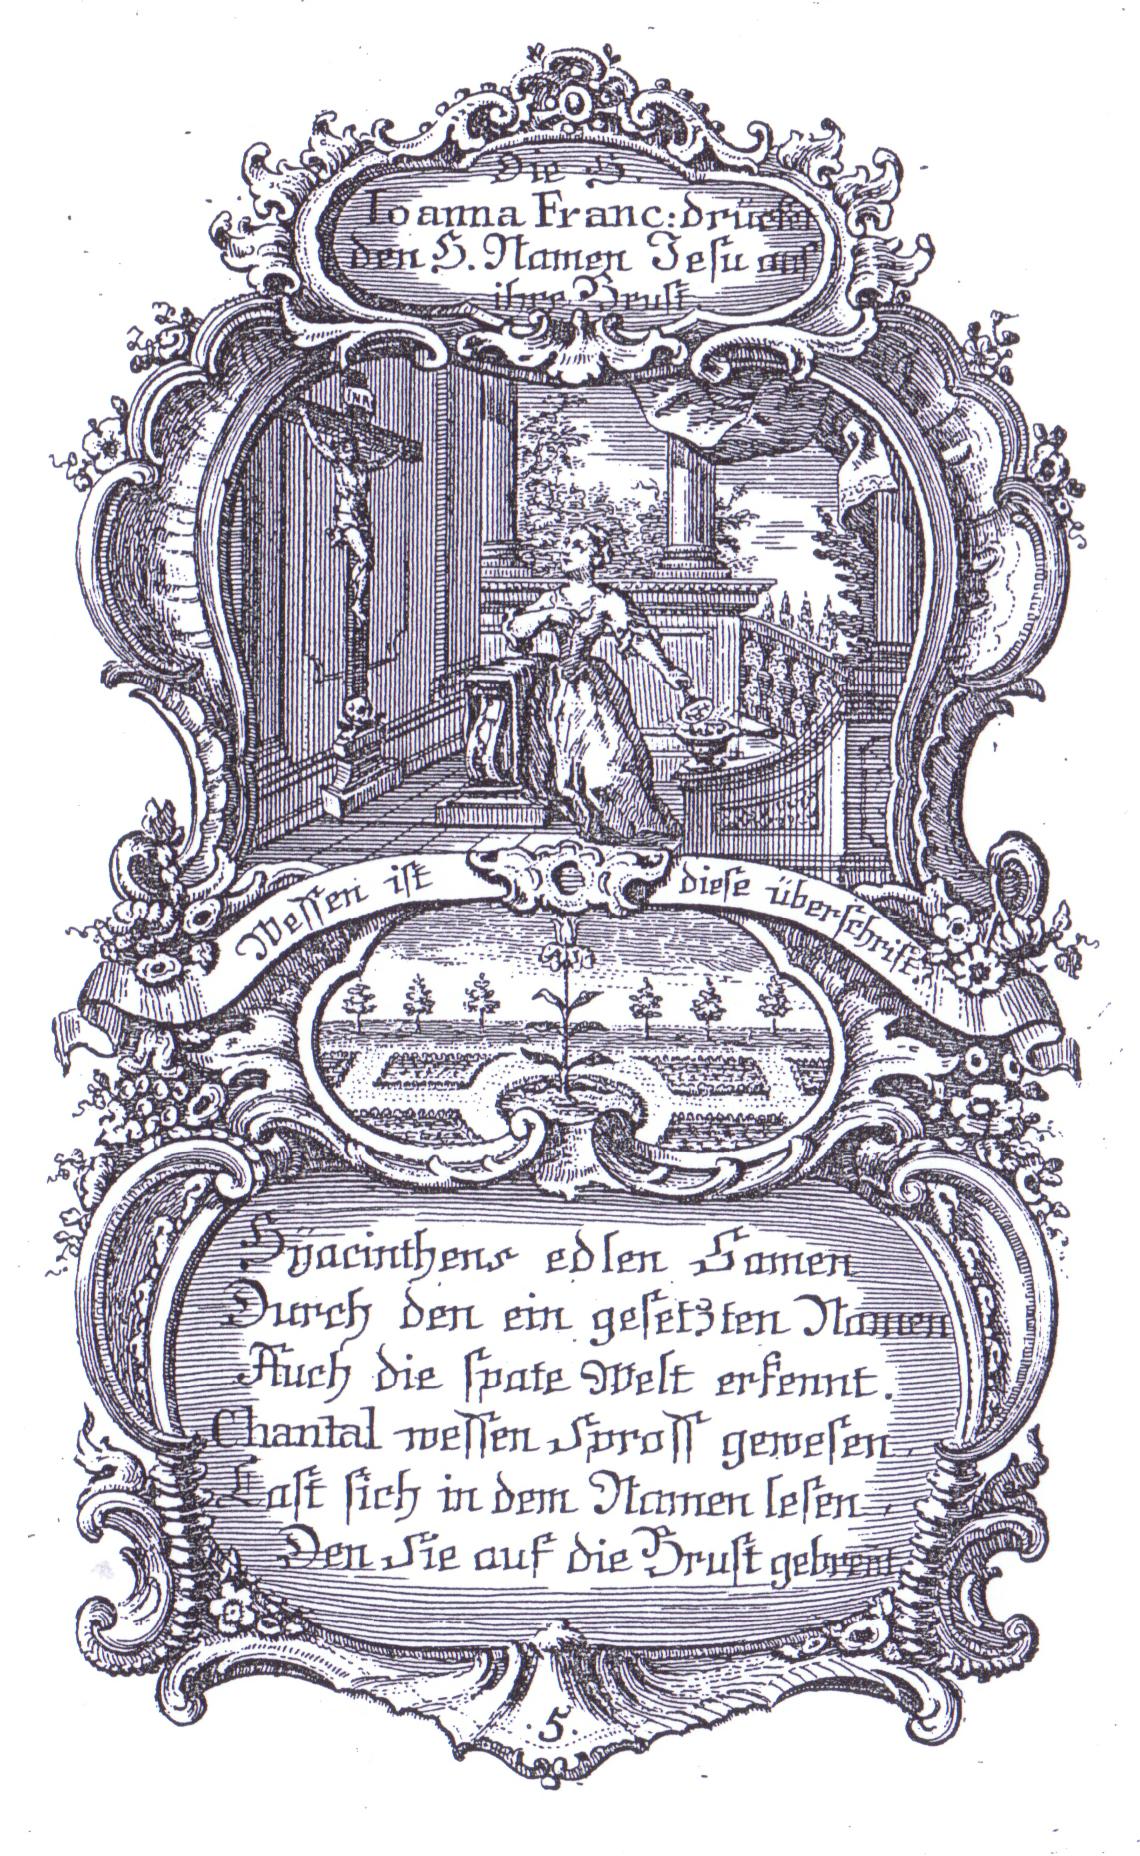 Die H.
Ioanna Franc: drücket
den H. Namen Jesu auf
ihre Brust.
INRI
Wessen ist diese überschrift
Hÿacinthens edlen Samen
Durch den ein gesetzten Namen
Auch die spate Welt erkennt.
Chantal wessen Spross gewesen
Last sich in dem Namen lesen.
Den Sie auf die Brust gebrent.
.5.